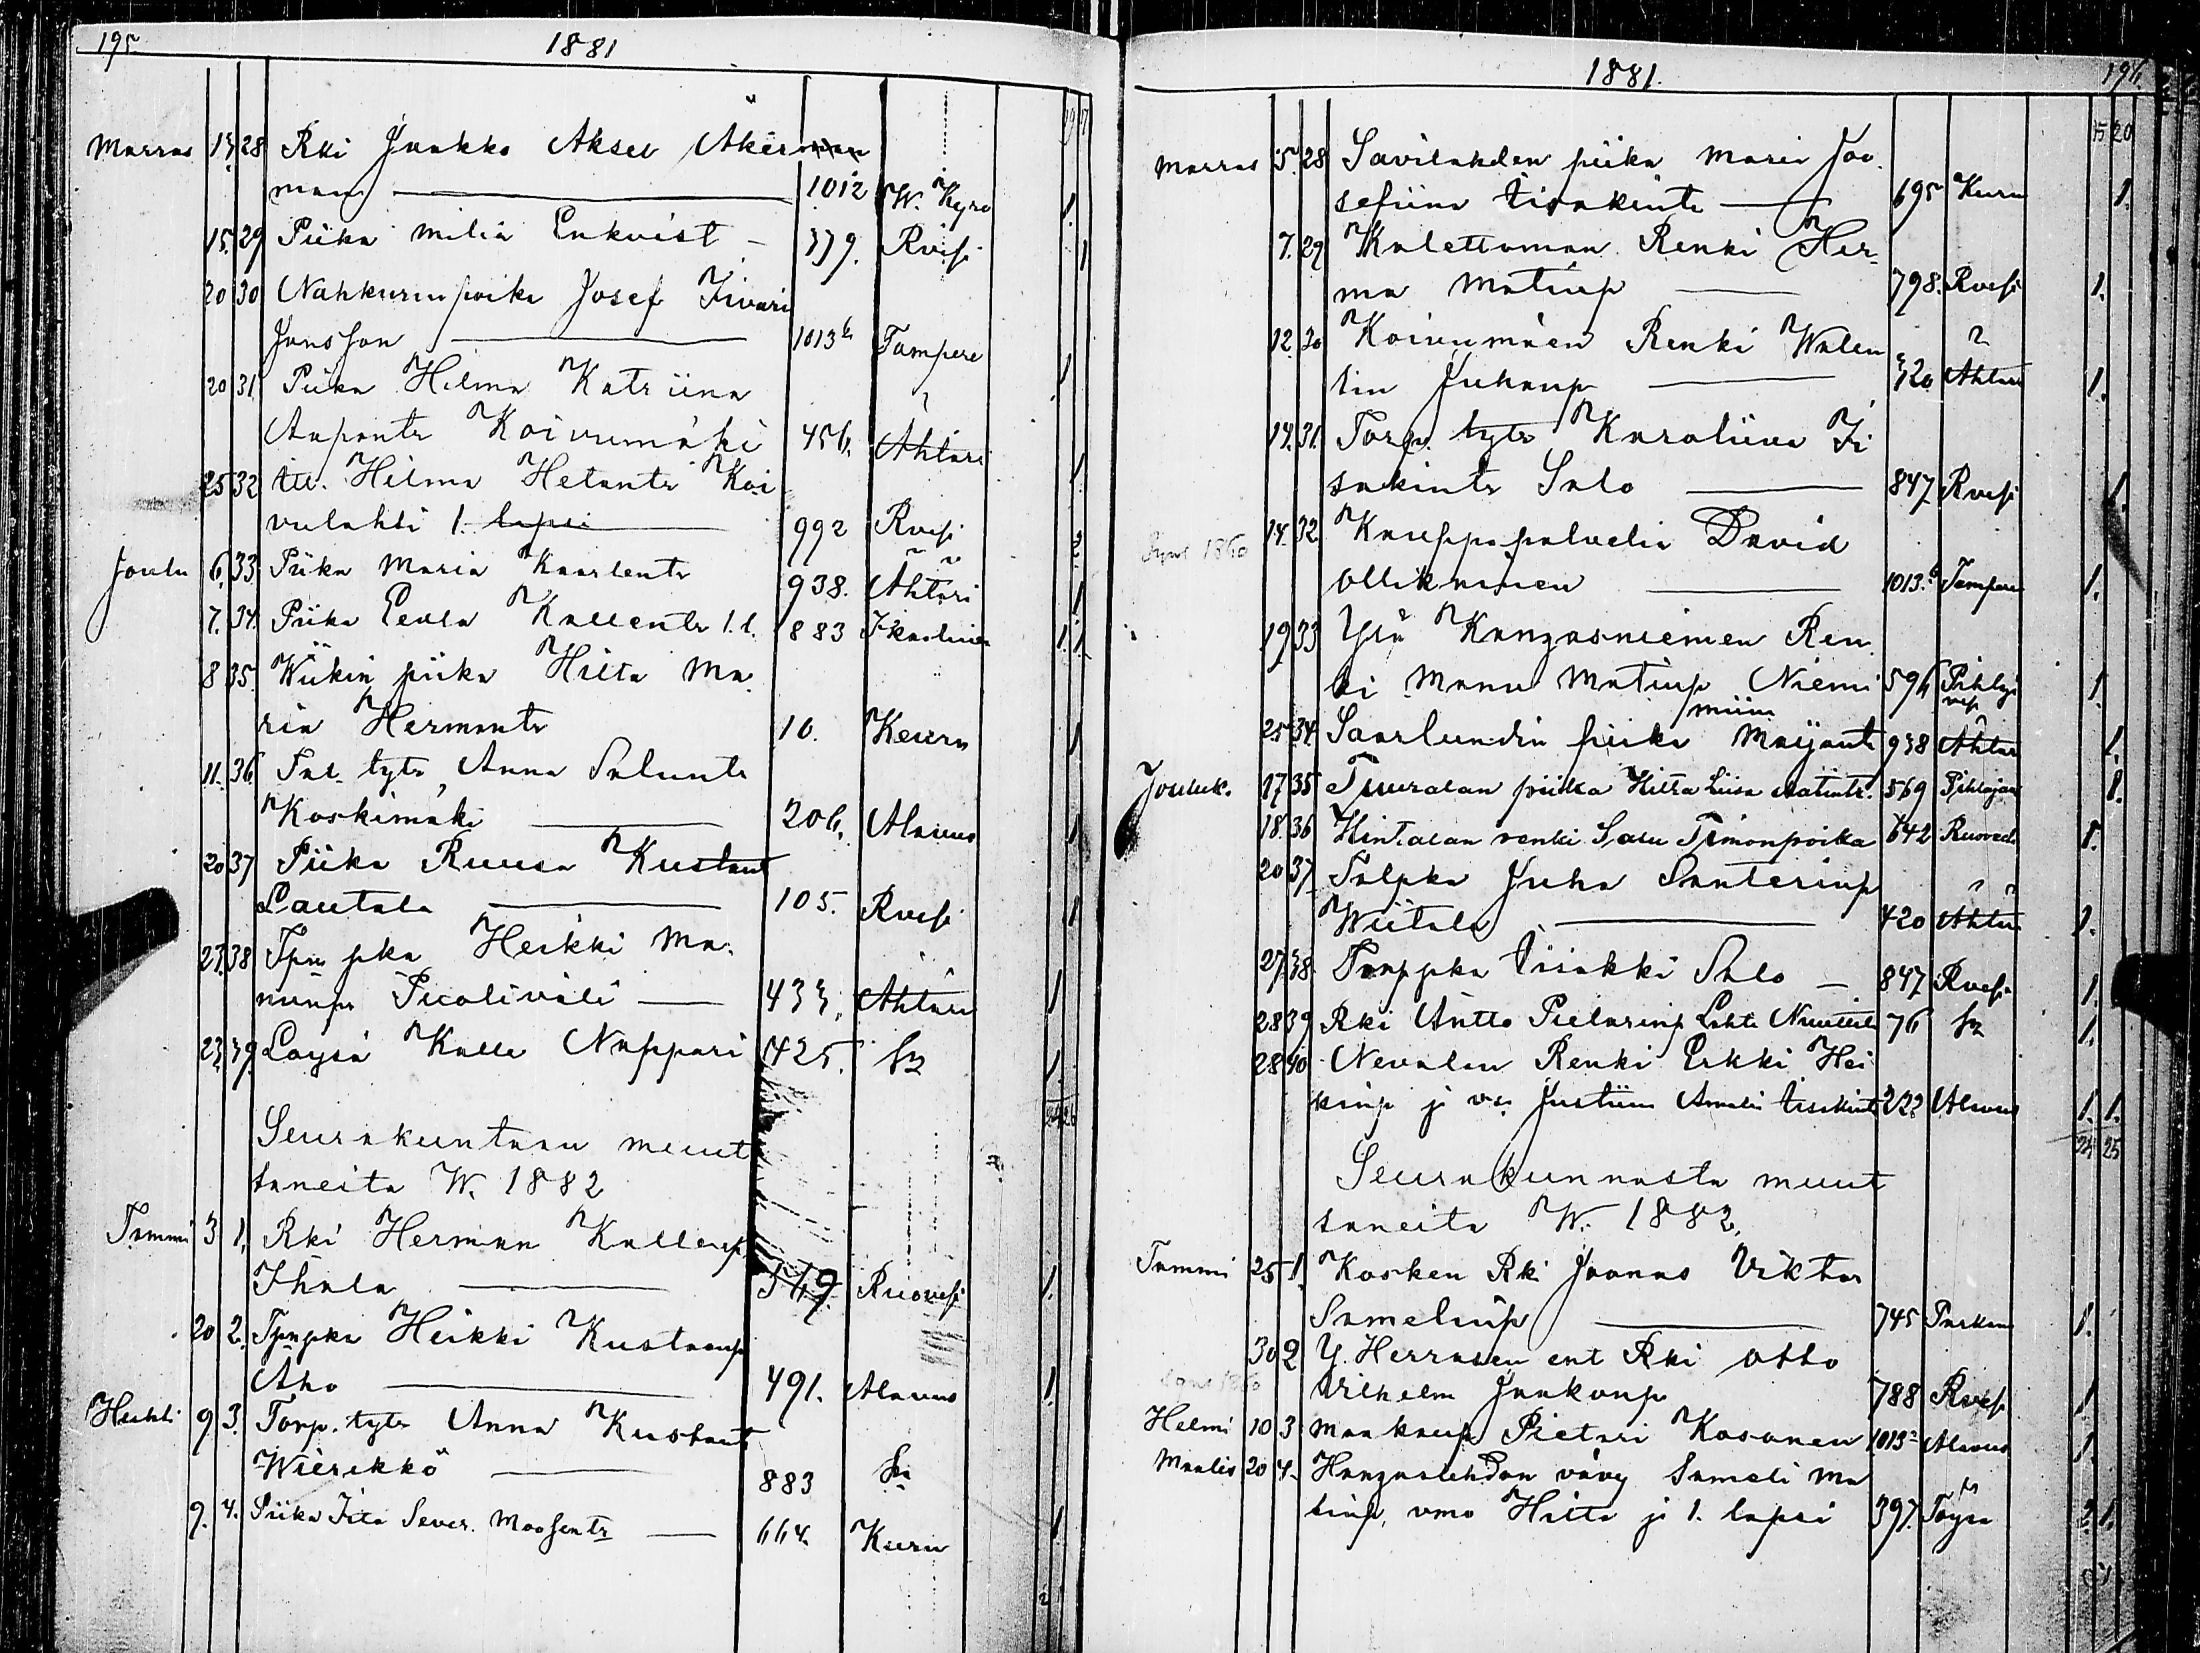 195
1881
Marras 13 28 Rki Jaakko Aksel Åkerman
man 1012 W. Kyro 1
15. 29 Piika Milia Enkvist 379. Rvesi 1
20 30 Nahkurin poika Josef Iivari
Jansson 1013 Tampere 1
20 31. Piika Hilma Katriina
Aapontr Koivumäki 456. Ähtäri 1
25 32 Itll. Hilma Hetantr Koi
vulahti 1. lapsi 992 Rvesi 2.
Joulu 6. 33 Piika Maria Kaarlentr 938. Ähtäri 1.
7. 34. Piika Eevla Kallentr 1. l. 883 Ikaalinen 1. 1.
8 35. Wiikin piika Hilta Ma
ria Hermantr 10. Keuru 1
11. 36. Tal. tytr Anna Saluntr
Koskimäki 206. Alavus 1
20 37 Piika Ruusa Kustant
Lautala 105. Rvesi 1
23. 38 Tpn pka Heikki Ma
nunp. Puoliväli 433. Ähtäri 1
23. 39 Loysä Kalle Nappari 425. 1.
24 26
Seurakuntaan muut
taneita W. 1882
Tammi 3 1. Rki Herman Kallenp
Ihala 569. Ruovesi 1.
20 2. Tpnpka Heikki Kustaanp
Aho 491. Alavus 1.
Hehli 9 3. Torp. tytr Anna Kustant
Wierikkö 883
9. 4. Piika Iita Sever. Moosentr 664. Kuru 1
1881. 196.
15 20
Marras 5. 28 Savilahden piika Maria Joo
sefiina Iisakintr 695 Kuru 1.
7. 29 Kalettoman Renki Her
ma Matinp 798. Rvesi 1.
12. 30 Koivumäen Renki Walen
tin Juhanp 320 Ähtäri 1.
14. 31. Torp. tytr Karoliina Ii
sakintr Salo 847 Rvesi 1.
14. 32. Kauppapalvelia David
Ollikainen 1013. Tampere 1.
19 33 Ylä Kangasniemen Ren
ki Manu Matinp Niemi 596 Pihlaj
vesi 1.
miina
25 34. Saarlundin piika Maijantr 938 Ähtäri 1.
Jouluk. 17 35 Tuuralan piika Hilta Liisa Matintr. 569 Pihlajav 1.
18. 36 Hintalan renki Salu Simonpoika 642 Ruoved 1.
20 37 Talpka Juha Santerinp
Wiitala 420 Ähtäri 1.
27 38. Torppka Iisakki Salo 847 Rvesi 1.
28 39 Rki Antto Pietarinp Lahti Nuuttila 76 1.
28 40 Nevalan Renki Erkki Hei
kinp ja va. Justiina Amalia Iisakint 222 Alavus 1. 1.
24 25
Seurakunnasta muut
taneita W. 1882.
Tammi 25 1. Kosken Rki Joonas Viktor
Samelinp 745 Parkano 1.
30 2 Y. Herrasen ent Rki Otto
Vilhelm Jaakonp 788 Rvesi 1.
Helmi 10 3 Maakaup Pietari Kosonen 1013 Alavus 1.
Maalis 20 4. Hangaslahdan vävy Sameli Ma
tinp, vmo Hilta ja 1. lapsi 397. Töysä 2. 1.